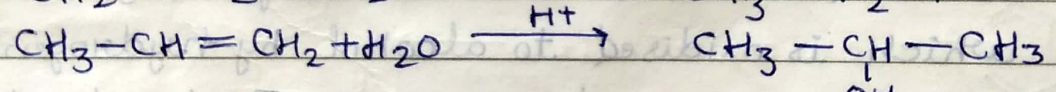 CH3-CH=CH2+H2O H+→ CH3-CH-CH3